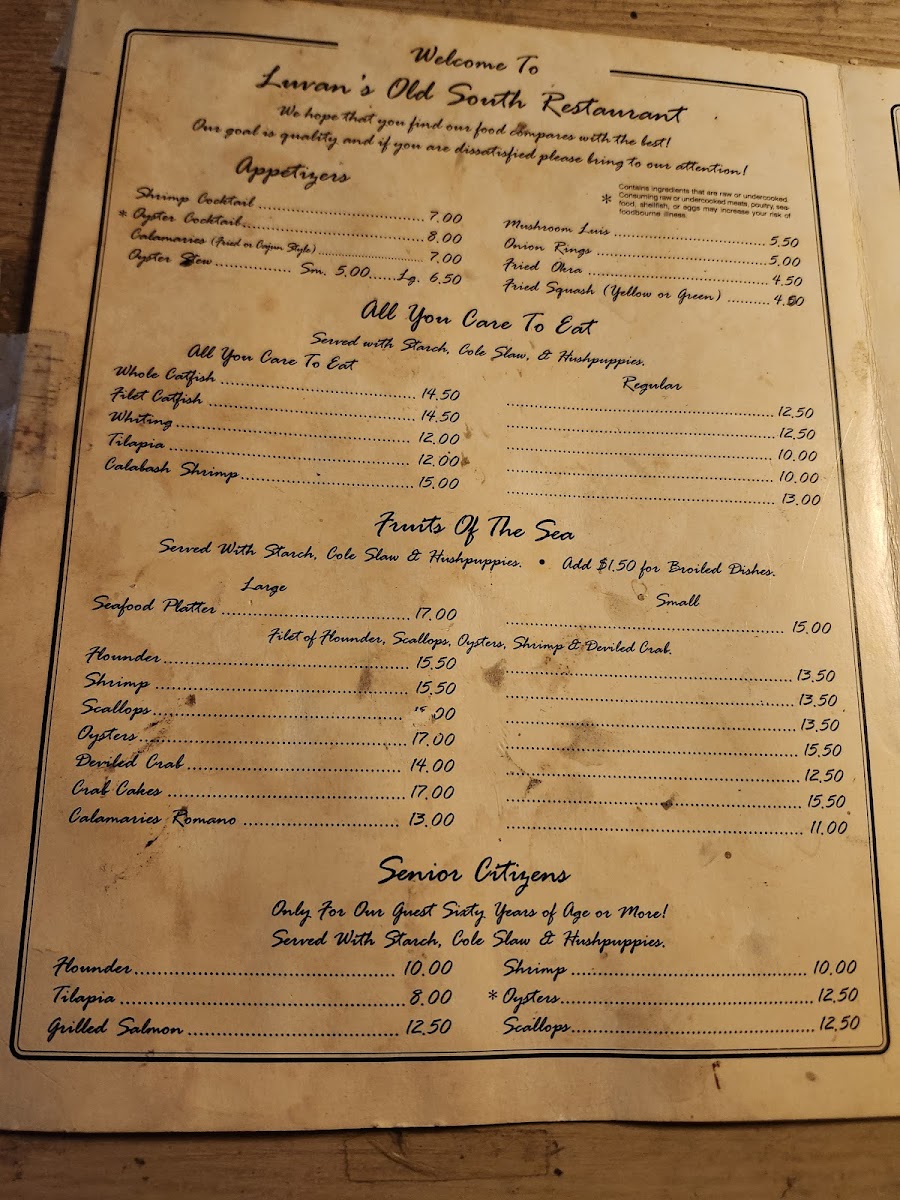 Welcome To
Luvan's Old South Restaurant
We hope that you find our food compares with the best!
Our goal is quality and if you are dissatisfied please bring to our attention!
Appetizers
Shrimp Cocktail 7.00
* Oyster Cocktail 8.00
Calamaries (Fried or Cajun Style) 7.00
Oyster Stew Sm. 5.00 Lg. 6.50
* Contains ingredients that are raw or undercooked.
Consuming raw or undercooked meats, poultry, sea-
food, shellfish, or eggs may increase your risk of
foodbourne illness.
Mushroom Luis 5.50
Onion Rings 5.00
Fried Okra 4.50
Fried Squash (Yellow or Green) 4.50
All You Care To Eat
Served with Starch, Cole Slaw, & Hushpuppies.
All You Care To Eat Regular
Whole Catfish 14.50 12.50
Filet Catfish 14.50 12.50
Whiting 12.00 10.00
Tilapia 12.00 10.00
Calabash Shrimp 15.00 13.00
Fruits Of The Sea
Served With Starch, Cole Slaw & Hushpuppies. • Add $1.50 for Broiled Dishes.
Large Small
Seafood Platter 17.00 15.00
Filet of Flounder, Scallops, Oysters, Shrimp & Deviled Crab.
Flounder 15.50 13.50
Shrimp 15.50 13.50
Scallops 13.50
Oysters 17.00 15.50
Deviled Crab 14.00 12.50
Crab Cakes 17.00 15.50
Calamaries Romano 13.00 11.00
Senior Citizens
Only For Our Guest Sixty Years of Age or More!
Served With Starch, Cole Slaw & Hushpuppies.
Flounder 10.00 Shrimp 10.00
Tilapia 8.00 * Oysters 12.50
Grilled Salmon 12.50 Scallops 12.50